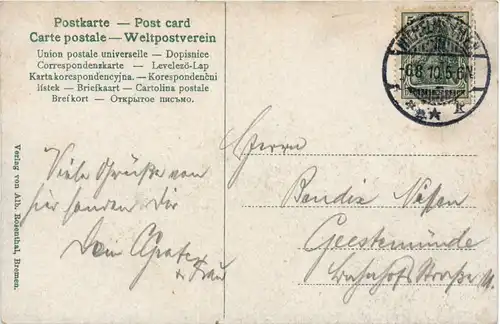 Postkarte — Post card
Carte postale — Weltpostverein
Union postale universelle — Dopisnice
Correspondenzkarte — Levelező-Lap
Karta korespondencyjna. — Korespondenční
lístek — Briefkaart — Cartolina postale
Brefkort — Открытое письмо.
6.8.10.5-6N.
Verlag von Alb. Rosenthal, Bremen.
Viele Grüße von
hier senden Dir
Dein
+ Frau
Herrn
Bendix
Geestemünde
Bahnhofs Straße